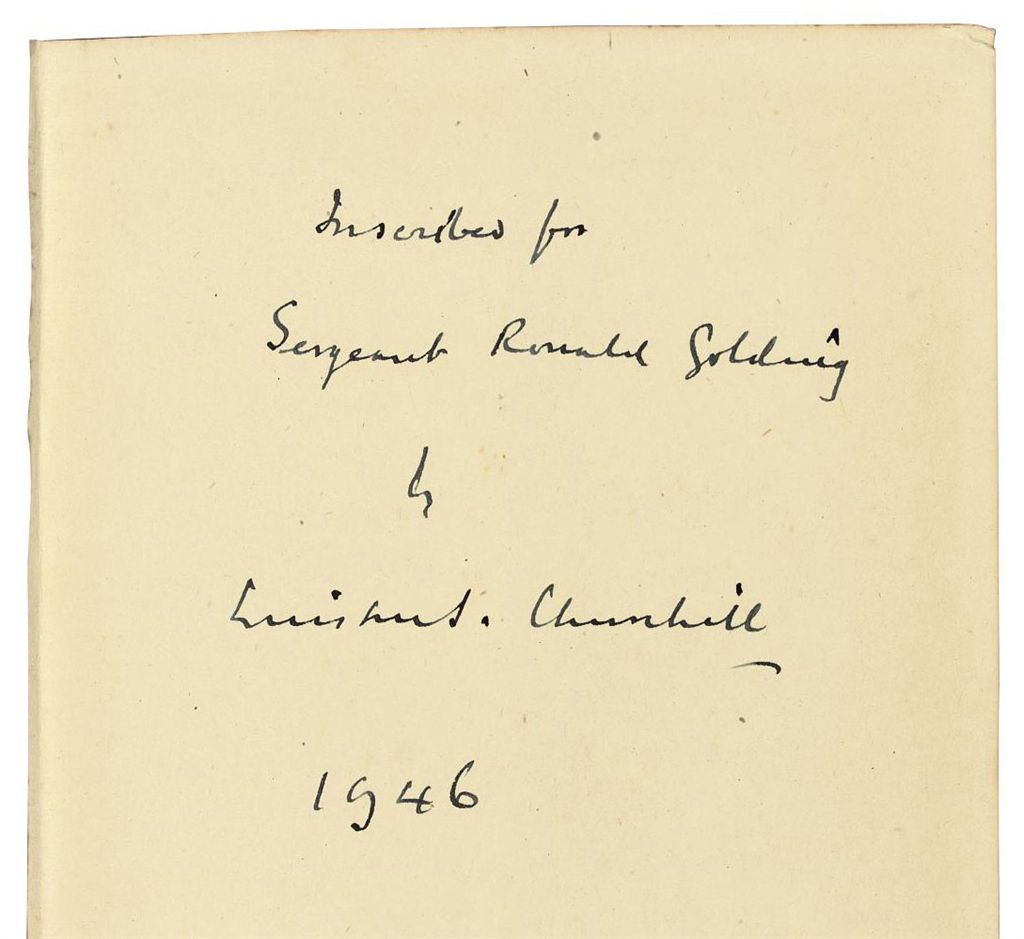 Inscribed for
Sergeant Ronald Golding
by
Winston S. Churchill
1946